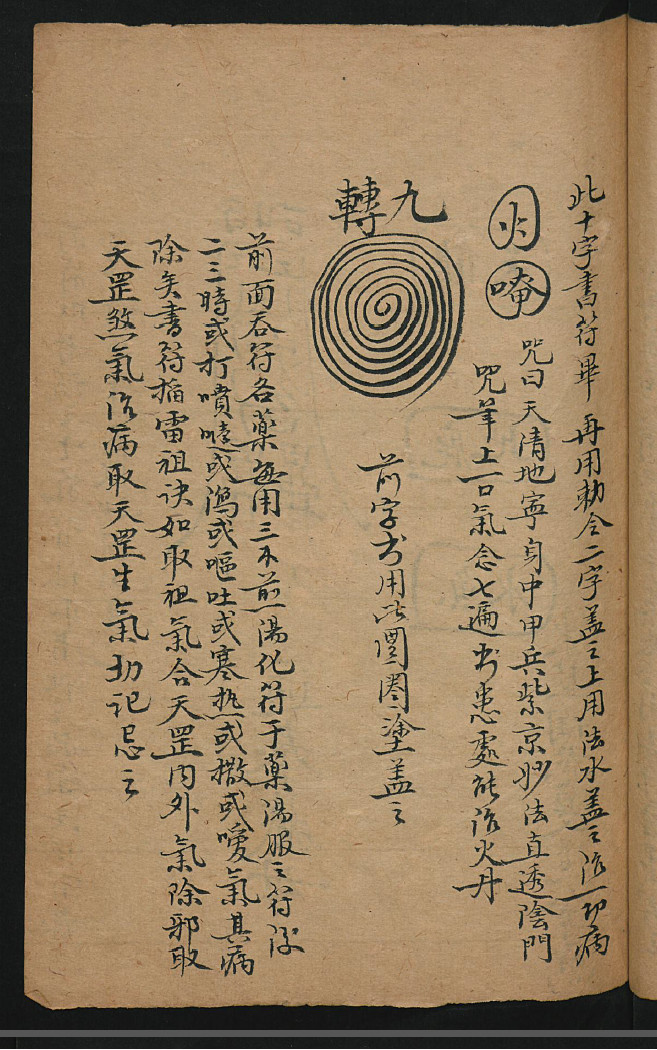 此十字書符畢再用勅令二字盖之上用法水盖之治一切病
唵
咒曰天清地寧身中甲兵紫京妙法直透陰門
咒筆上一口氣念七遍书患處能治火丹
九轉
前字书用此圈圈塗盖之
前面吞符各藥每用三不煎湯化符于藥湯服之符後
二三時或打噴嚏或瀉或嘔吐或寒热或撒或噯氣其病
除矣書符掐雷祖诀如取祖氣合天罡内外氣除邪取
天罡煞氣治病取天罡生氣切记忌之